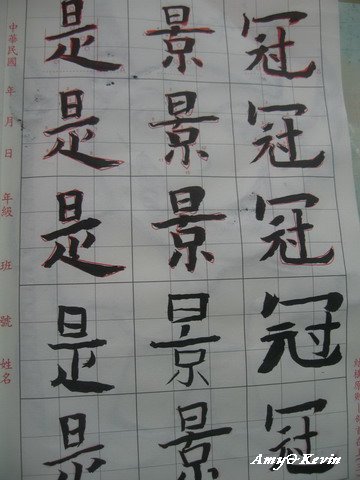 冠冠冠冠冠
景景景景景
是是是是是
中華民國 年 月 日 年級 班 號 姓名
Amy&Kevin